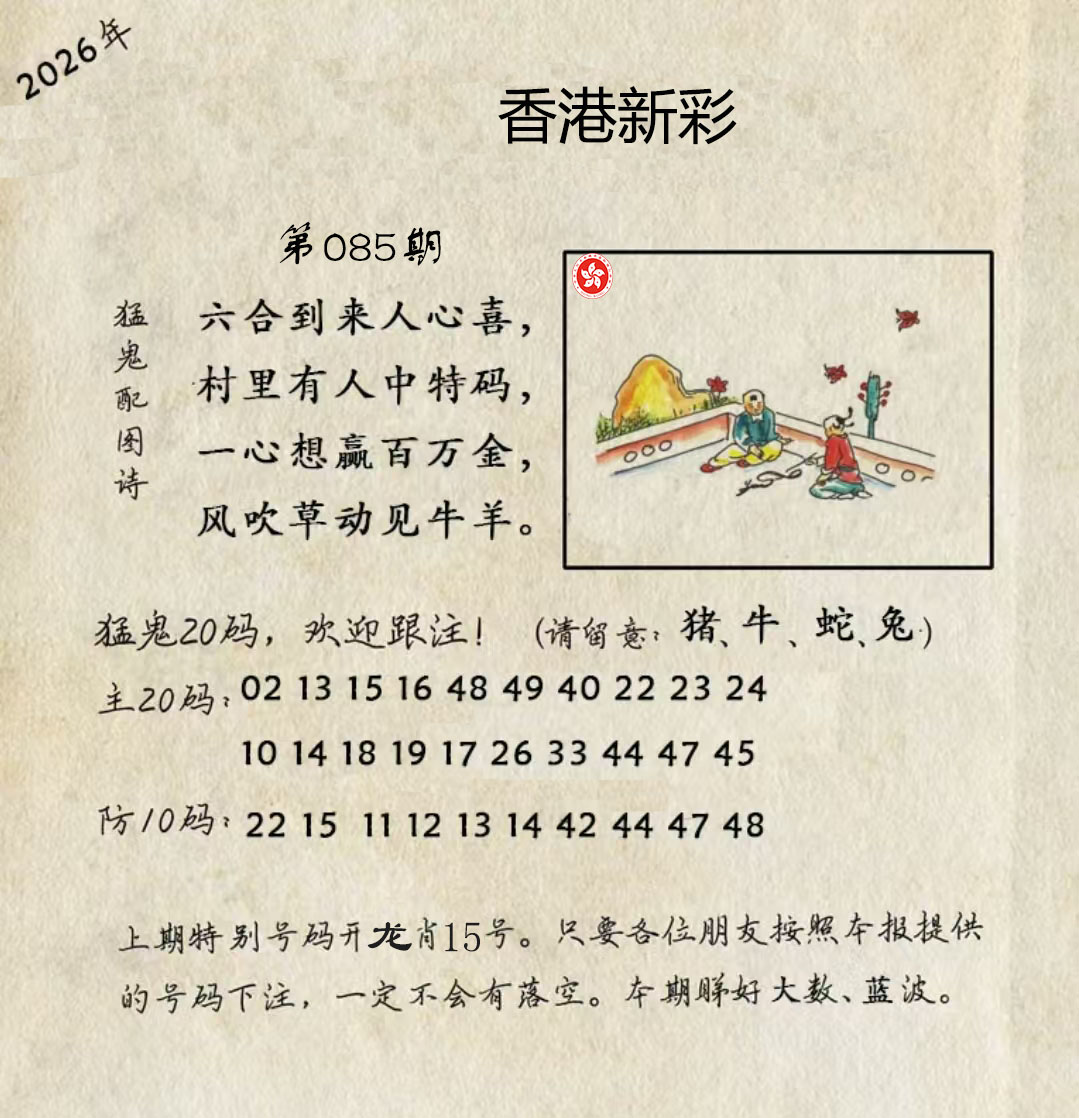 2026年
香港新彩
第085期
猛鬼配图诗
六合到来人心喜，
村里有人中特码，
一心想赢百万金，
风吹草动见牛羊。
猛鬼20码，欢迎跟注！（请留意：猪、牛、蛇、兔）
主20码：02 13 15 16 48 49 40 22 23 24
10 14 18 19 17 26 33 44 47 45
防10码：22 15 11 12 13 14 42 44 47 48
上期特别号码开龙肖15号。只要各位朋友按照本报提供
的号码下注，一定不会有落空。本期睇好大数、蓝波。